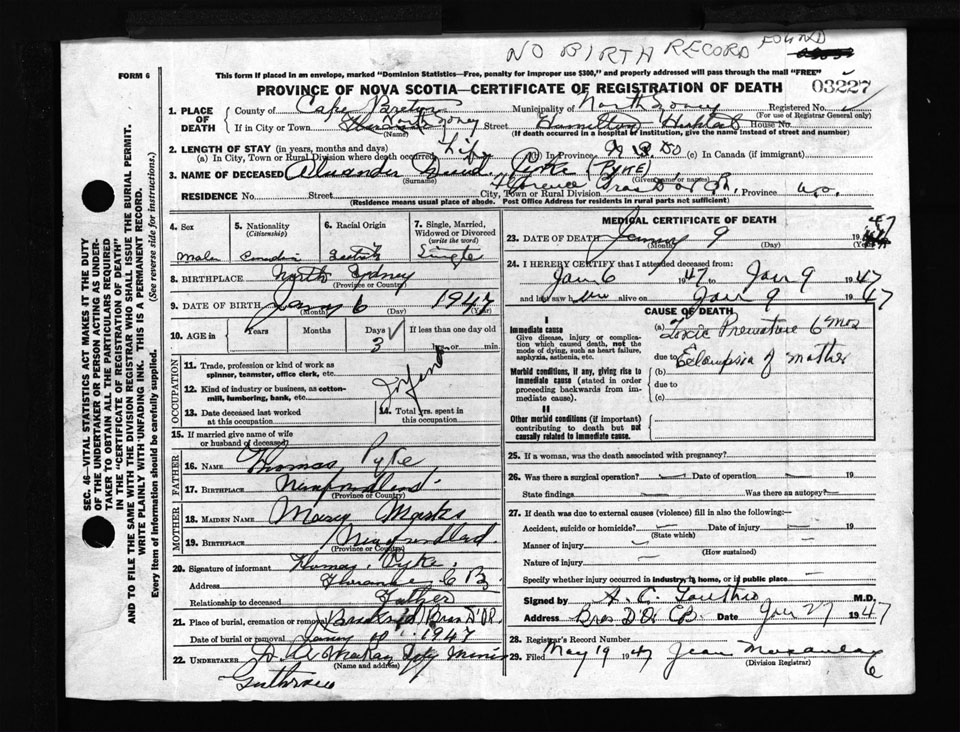 NO BIRTH RECORD FOUND
FORM 6
This form if placed in an envelope, marked "Dominion Statistics—Free, penalty for improper use $300," and properly addressed will pass through the mail "FREE"
PROVINCE OF NOVA SCOTIA—CERTIFICATE OF REGISTRATION OF DEATH
03227
SEC. 46—VITAL STATISTICS ACT MAKES IT THE DUTY
OF THE UNDERTAKER OR PERSON ACTING AS UNDER-
TAKER TO OBTAIN ALL THE PARTICULARS REQUIRED
IN THE "CERTIFICATE OF REGISTRATION OF DEATH"
AND TO FILE THE SAME WITH THE DIVISION REGISTRAR WHO SHALL ISSUE THE BURIAL PERMIT.
WRITE PLAINLY WITH UNFADING INK. THIS IS A PERMANENT RECORD.
Every item of information should be carefully supplied. (See reverse side for instructions.)
1. PLACE OF DEATH County of Cape Breton Municipality of North Sydney Registered No.
(For use of Registrar General only)
If in City or Town North Sydney Street Hamilton Hospital House No.
(Name) (If death occurred in a hospital of institution, give the name instead of street and number)
2. LENGTH OF STAY (in years, months and days)
(a) In City, Town or Rural Division where death occurred Life (b) In Province (c) In Canada (if immigrant)
3. NAME OF DECEASED Alexander Pyke (PYKE)
(Surname) (Given name or names)
RESIDENCE No. Street City, Town or Rural Division Florence Bras D'or Province
(Residence means usual place of abode. Post Office Address for residents in rural parts not sufficient)
4. Sex
Male
5. Nationality
(Citizenship)
Canadian
6. Racial Origin
7. Single, Married, Widowed or Divorced
(write the word)
Single
8. BIRTHPLACE North Sydney
(Province or Country)
9. DATE OF BIRTH 6 1947
(Month) (Day) (Year)
10. AGE in Years Months Days 3 If less than one day old
hrs. or min.
OCCUPATION
11. Trade, profession or kind of work as
spinner, teamster, office clerk, etc.
12. Kind of industry or business, as cotton-
mill, lumbering, bank, etc.
Infant
13. Date deceased last worked
at this occupation
14. Total yrs. spent in
this occupation
15. If married give name of wife
or husband of deceased
FATHER
16. NAME Thomas Pyke
17. BIRTHPLACE Newfoundland
(Province or Country)
MOTHER
18. MAIDEN NAME Mary Marks
19. BIRTHPLACE Newfoundland
(Province or Country)
20. Signature of informant Thomas Pyke
Address Florence C B
Relationship to deceased Father
21. Place of burial, cremation or removal
Date of burial or removal 1947
22. UNDERTAKER
(Name and address)
MEDICAL CERTIFICATE OF DEATH
23. DATE OF DEATH 9 1947
(Month) (Day)
24. I HEREBY CERTIFY that I attended deceased from:
Jan 6 1947 to Jan 9 1947
and last saw h alive on Jan 9 1947
CAUSE OF DEATH
I
Immediate cause
Give disease, injury or complica-
tion which caused death, not the
mode of dying, such as heart failure,
asphyxia, asthenia, etc.
(a) Toxic Premature 6 mos
due to Eclampsia of mother
Morbid conditions, if any, giving rise to
immediate cause (stated in order
proceeding backwards from im-
mediate cause).
(b)
due to
(c)
II
Other morbid conditions (if important)
contributing to death but not
causally related to immediate cause.
25. If a woman, was the death associated with pregnancy?
26. Was there a surgical operation? Date of operation 19
State findings Was there an autopsy?
27. If death was due to external causes (violence) fill in also the following:—
Accident, suicide or homicide? Date of injury 19
(State which)
Manner of injury
(How sustained)
Nature of injury
Specify whether injury occurred in industry, in home, or in public place
Signed by M.D.
Address Bras D'Or CB. Date Jan 27 1947
28. Registrar's Record Number
29. Filed May 19 1947 Jean
(Division Registrar)